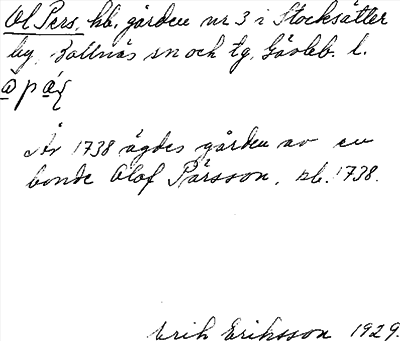 Ol Pers, hb. gården nr 3 i Stocksätter
by, Kallnäs sn och tg, Gävleb. l.
År 1738 ägdes gården av en
bonde Olof Pärsson, sb. 1738.
Erik Eriksson 1929.